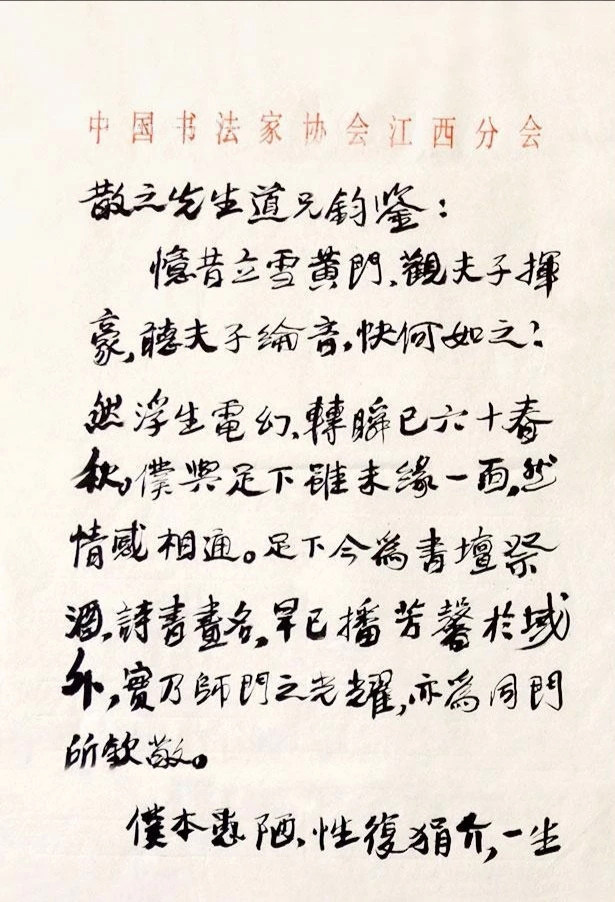 中国书法家协会江西分会
散之先生道兄鈞鑒：
憶昔立雪黄門、觀夫子揮
豪，聽夫子綸音，快何如之；
然浮生電幻、轉瞬已六十春
秋。僕與足下雖未緣一面，然
情感相通。足下今為書壇祭
酒，詩書畫名，早已播芳馨於域
外，實乃師門之光耀，亦為同門
所欽敬。
僕本愚陋、性復狷介，一生